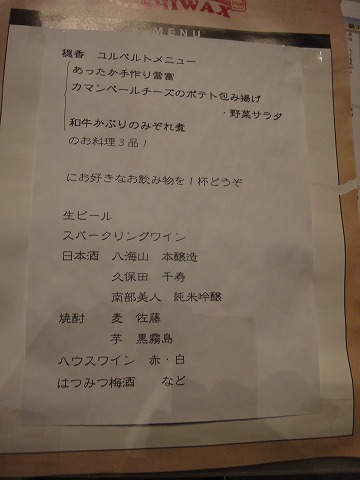 MENU
穂香 ユルベルトメニュー
あったか手作り雷富
カマンベールチーズのポテト包み揚げ
・野菜サラダ
和牛かぶりのみぞれ煮
のお料理3品!
にお好きなお飲み物を1杯どうぞ
生ビール
スパークリングワイン
日本酒 八海山 本醸造
久保田 千寿
南部美人 純米吟醸
焼酎 麦 佐藤
芋 黒霧島
ハウスワイン 赤・白
はつみつ梅酒 など